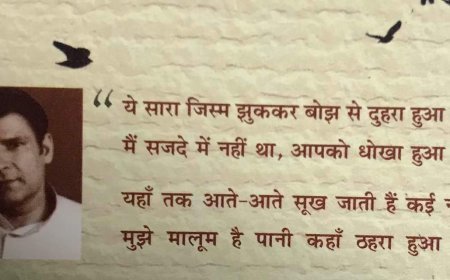 “ ये सारा जिस्म झुककर बोझ से दुहरा हुआ
मैं सजदे में नहीं था, आपको धोखा हुआ
यहाँ तक आते-आते सूख जाती हैं कई
मुझे मालूम है पानी कहाँ ठहरा हुआ